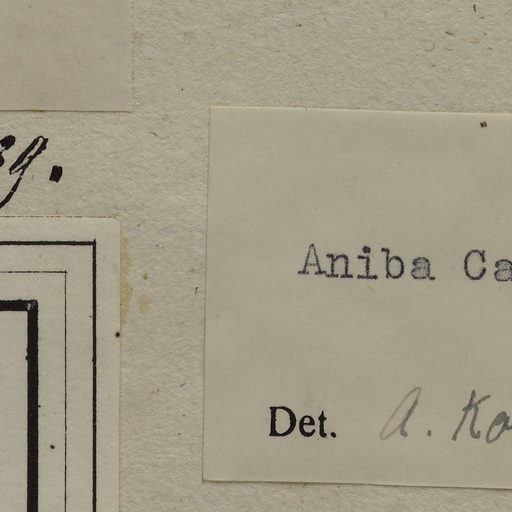 Aniba Ca
Det. A. Ko